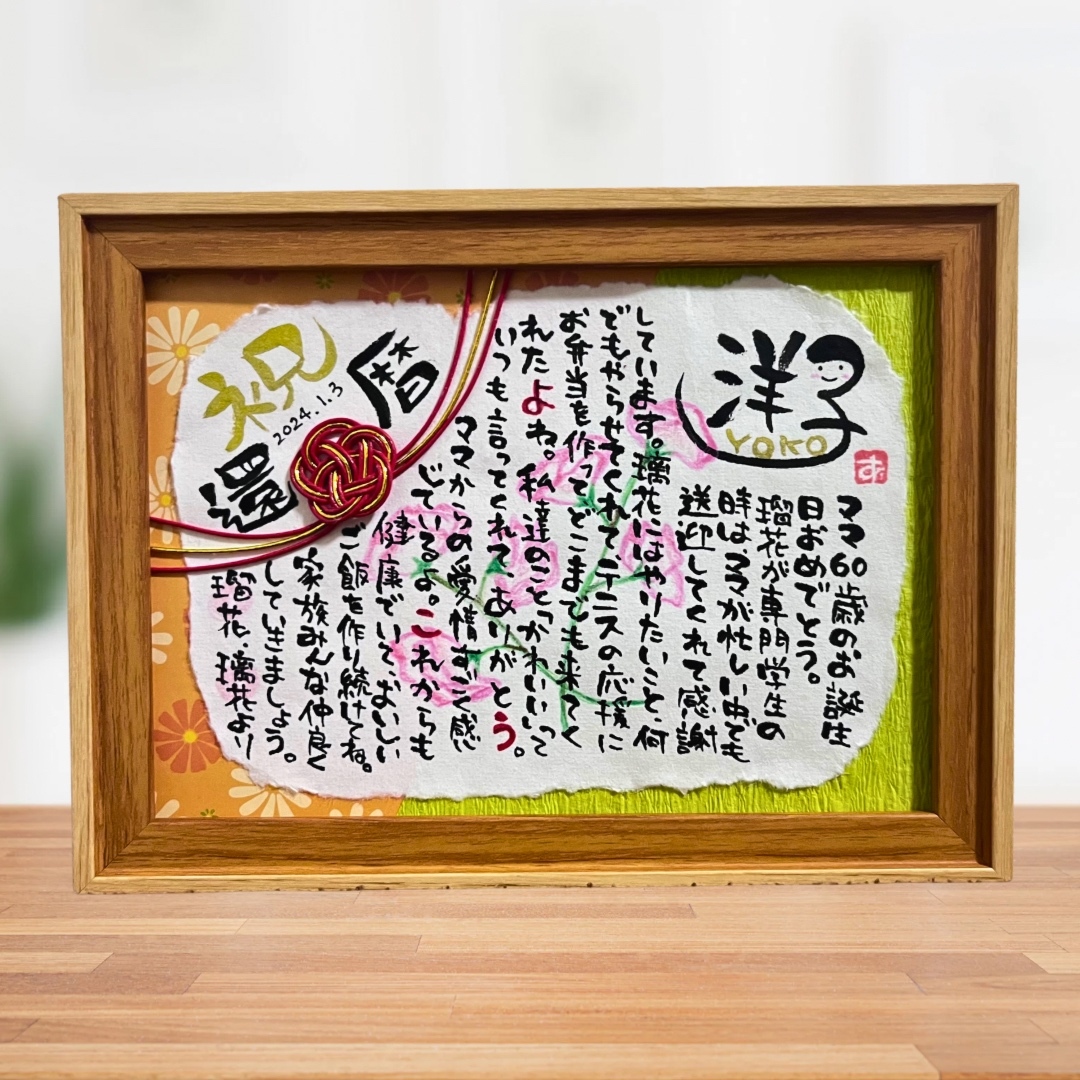 洋子
YOKO
す
ママ60歳のお誕生
日おめでとう。
瑠花が専門学生の
時は、ママが忙しい中でも
送迎してくれて感謝
しています。璃花にはやりたいこと、何
でもやらせてくれて、テニスの応援に
お弁当を作ってどこまでも来てく
れたよね。私達のこと「かわいい」って
いつも言ってくれて、ありがとう。
ママからの愛情すごく感
じているよ。これからも
健康でいて、おいしい
ご飯を作り続けてね。
家族みんな仲良く
していきましょう。
瑠花・璃花より
祝
還暦
2024.1.3